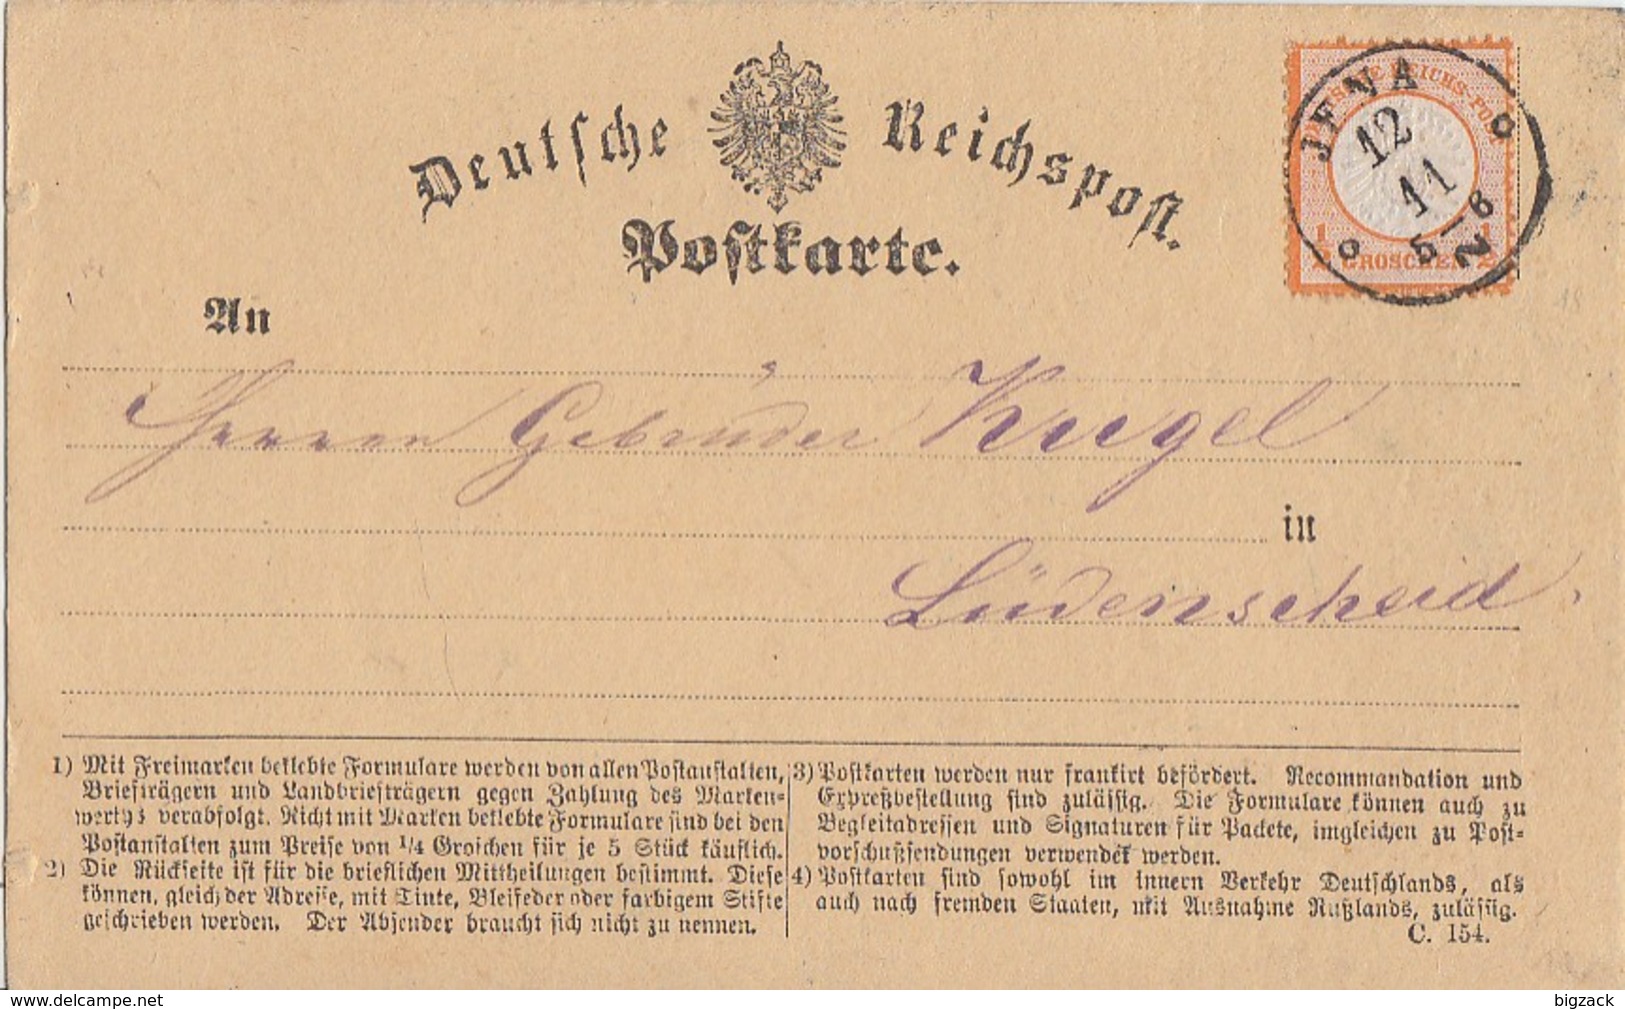 Deutsche Reichspost.
Postkarte.
DEUTSCHE REICHS-POST
1/2 GROSCHEN 1/2
JENA
12
11
5-6
N
An
Herren Gebrüder Kugel
in
Lüdenscheid.
1) Mit Freimarken beklebte Formulare werden von allen Postanstalten,
Briefträgern und Landbriefträgern gegen Zahlung des Marken-
werths verabfolgt. Nicht mit Marken beklebte Formulare sind bei den
Postanstalten zum Preise von 1/4 Groschen für je 5 Stück käuflich.
2) Die Rückseite ist für die brieflichen Mittheilungen bestimmt. Diese
können, gleich der Adresse, mit Tinte, Bleifeder oder farbigem Stifte
geschrieben werden. Der Absender braucht sich nicht zu nennen.
3) Postkarten werden nur frankirt befördert. Recommandation und
Expreßbestellung sind zulässig. Die Formulare können auch zu
Begleitadressen und Signaturen für Packete, imgleichen zu Post-
vorschußsendungen verwendet werden.
4) Postkarten sind sowohl im innern Verkehr Deutschlands, als
auch nach fremden Staaten, mit Ausnahme Rußlands, zulässig.
C. 154.
www.delcampe.net
bigzack